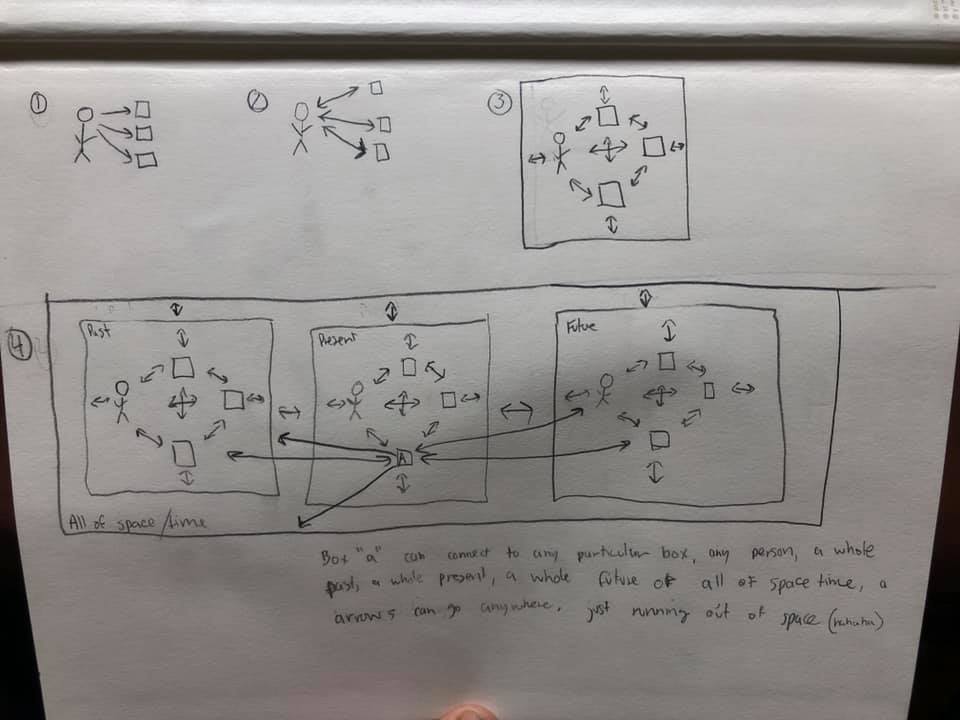 1
2
3
4
Past
Present
Future
A
All of space/time
Box "a" can connect to any particular box, any person, a whole
past, a whole present, a whole future of all of space time, a
arrows can go anywhere, just running out of space (hahaha)